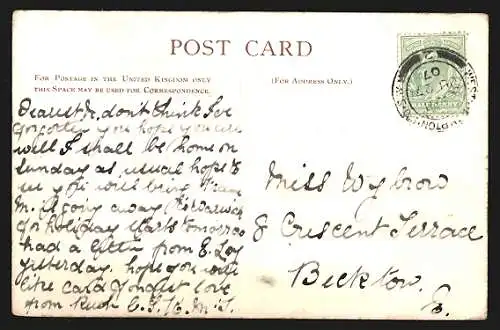 POST CARD
FOR POSTAGE IN THE UNITED KINGDOM ONLY
THIS SPACE MAY BE USED FOR CORRESPONDENCE.
(FOR ADDRESS ONLY.)
Dearest don't think I've
forgotten you hope you are
well I shall be home on
Sunday as usual hope to
see you will bring
M. A going away
for holiday starts tomorrow
had a letter from E.
yesterday. hope you will
like card fondest love
from
Miss Wybrow
8 Crescent Terrace
Beckton.
E.
HALFPENNY
07